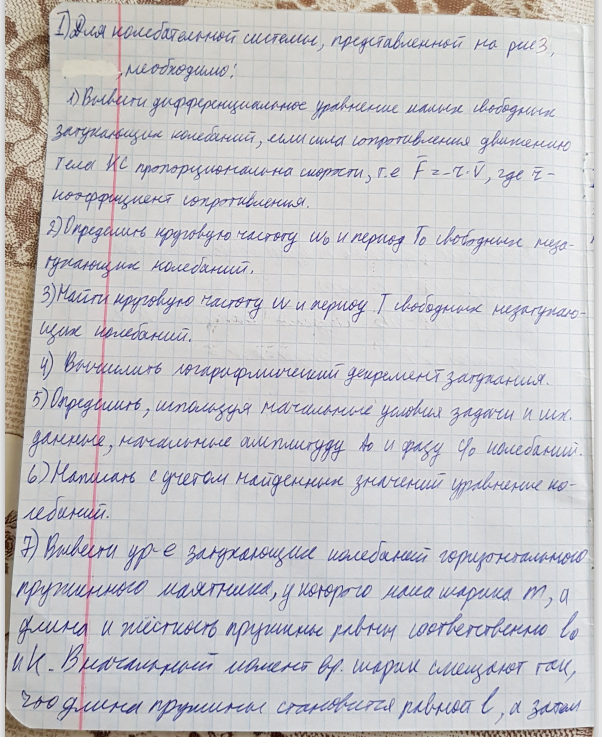 I) Для колебательной системы, представленной на рис 3,
, необходимо:
1) Вывести дифференциальное уравнение малых свободных
затухающих колебаний, если сила сопротивления движению
тела КС пропорциональна скорости, т.е F̄ = -τ·V̄, где τ-
коэффициент сопротивления.
2) Определить круговую частоту ω₀ и период T₀ свободных неза-
тухающих колебаний.
3) Найти круговую частоту ω и период T свободных незатухаю-
щих колебаний.
4) Вычислить логарифмический декремент затухания.
5) Определить, используя начальные условия задачи и их.
данные, начальные амплитуду A₀ и фазу φ₀ колебаний.
6) Написать с учетом найденных значений уравнение ко-
лебаний.
7) Вывести ур-е затухающих колебаний горизонтального
пружинного маятника, у которого масса шарика m, а
длина и жёсткость пружины равны соответственно l₀
и K. В начальный момент вр. шарик смещают так,
что длина пружины становится равной l, а затем